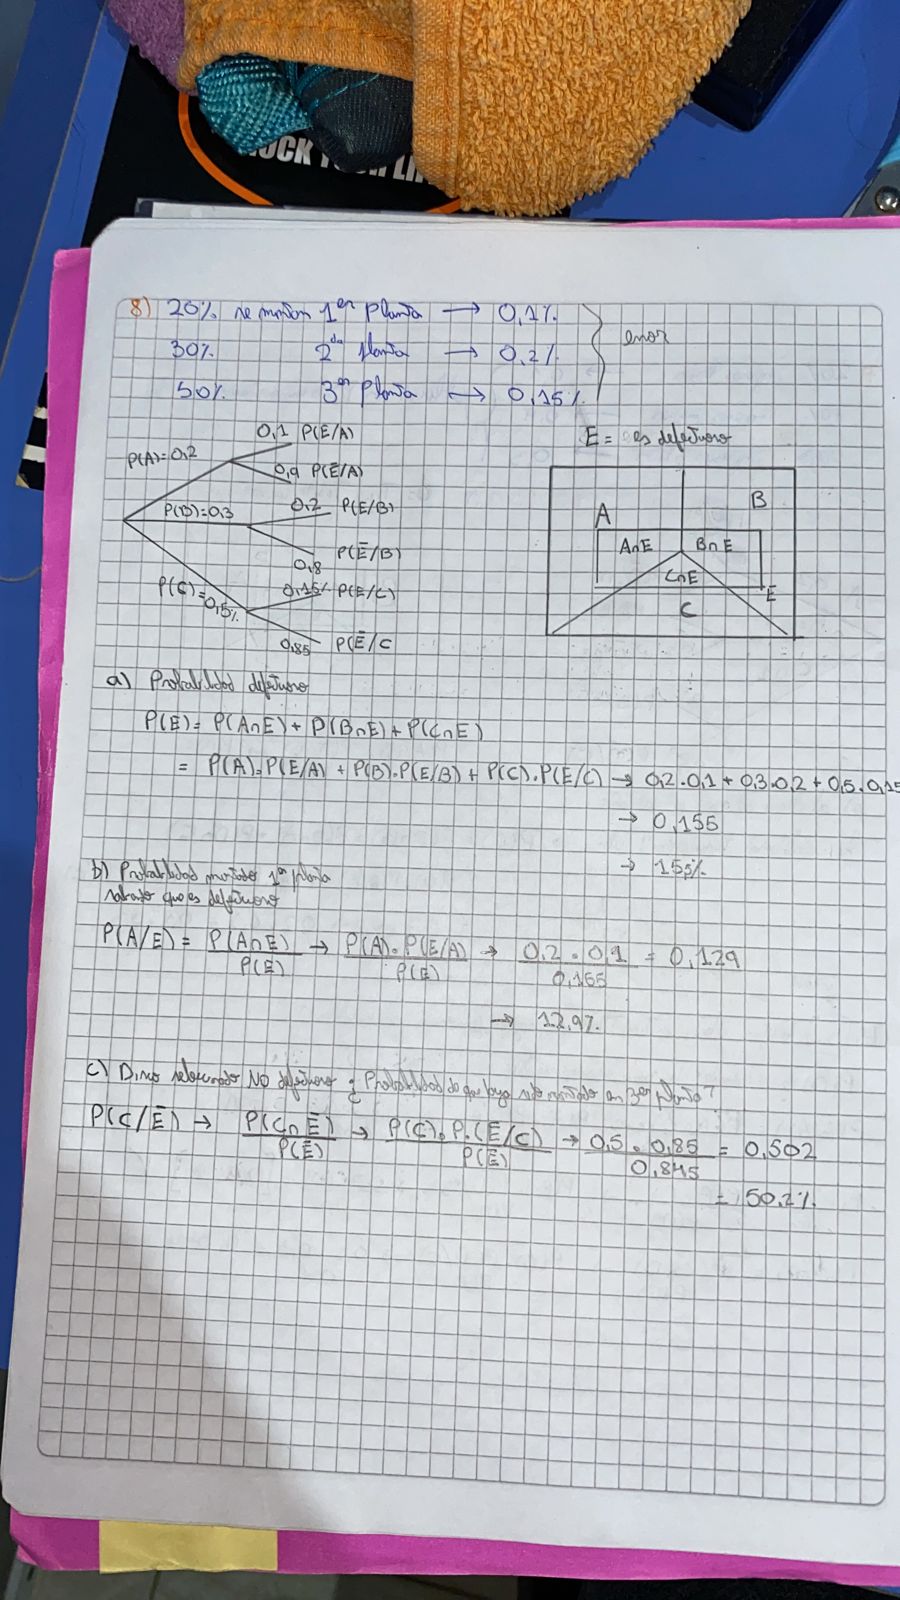 8) 20% se montan 1er planta → 0,1%
30% 2da planta → 0,2%
50% 3er planta → 0,15%
error
E = es defectuoso
P(A)=0,2
0,1 P(E/A)
0,9 P(Ē/A)
P(B)=0,3
0,2 P(E/B)
0,8 P(Ē/B)
P(C)=0,5%
0,15% P(E/C)
0,85 P(Ē/C
A
B
A∩E
B∩E
C∩E
E
C
a) Probabilidad defectuoso
P(E)= P(A∩E) + P(B∩E) + P(C∩E)
= P(A).P(E/A) + P(B).P(E/B) + P(C).P(E/C) → 0,2.0,1 + 0,3.0,2 + 0,5.0,15
→ 0,155
→ 15,5%
b) Probabilidad montado 1er planta
sabiendo que es defectuoso
P(A/E) = P(A∩E) / P(E) → P(A).P(E/A) / P(E) → 0,2.0,1 / 0,155 = 0,129
→ 12,9%
c) Disco seleccionado NO defectuoso ¿Probabilidad de que haya sido montado en 3er planta?
P(C/Ē) → P(C∩Ē) / P(Ē) → P(C).P.(Ē/C) / P(Ē) → 0,5.0,85 / 0,845 = 0,502
= 50,2%